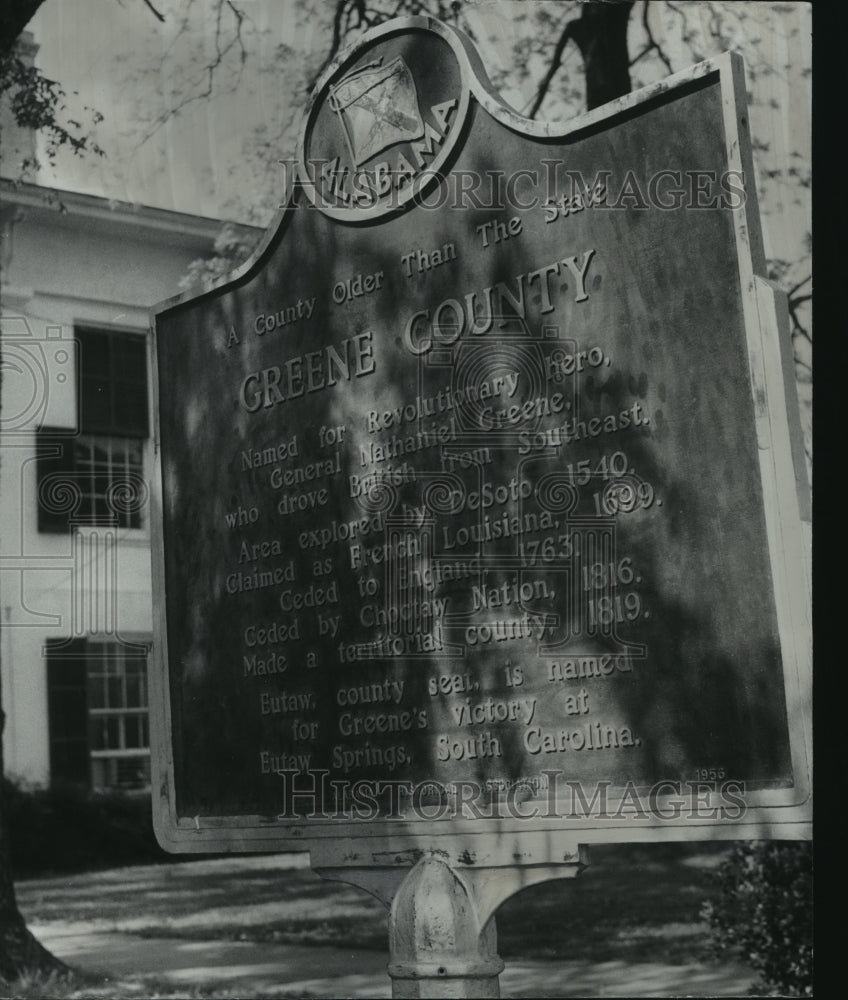 ALABAMA
HISTORIC IMAGES
A County Older Than The State
GREENE COUNTY
Named for Revolutionary hero,
General Nathaniel Greene,
who drove British from Southeast.
Area explored by DeSoto, 1540.
Claimed as French Louisiana, 1699.
Ceded to England, 1763.
Ceded by Choctaw Nation, 1816.
Made a territorial county, 1819.
Eutaw, county seat, is named
for Greene's victory at
Eutaw Springs, South Carolina.
ASSOCIATION 1956
HISTORIC IMAGES HISTORIC IMAGES